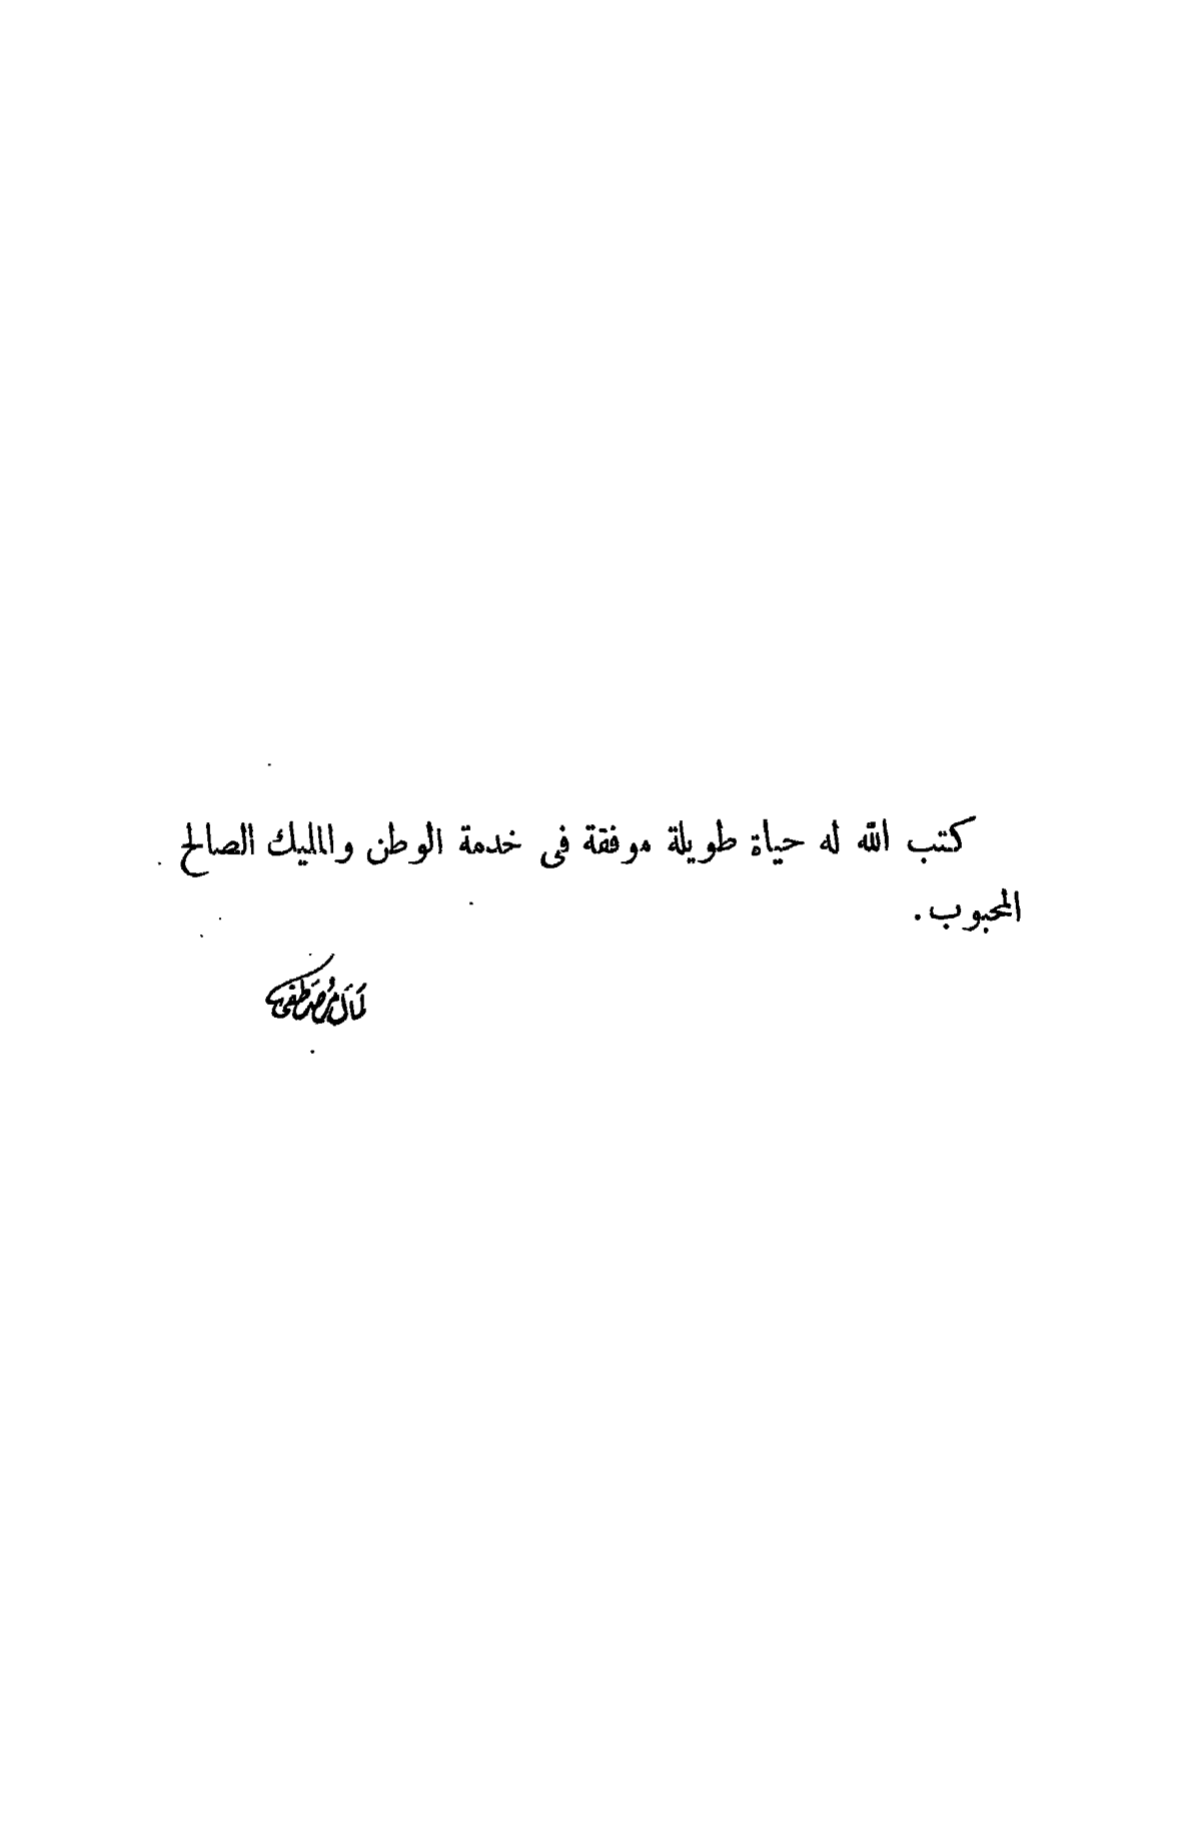 كتب الله له حياة طويلة موفقة فى خدمة الوطن والمليك الصالح
المحبوب .
كمال مصطفى